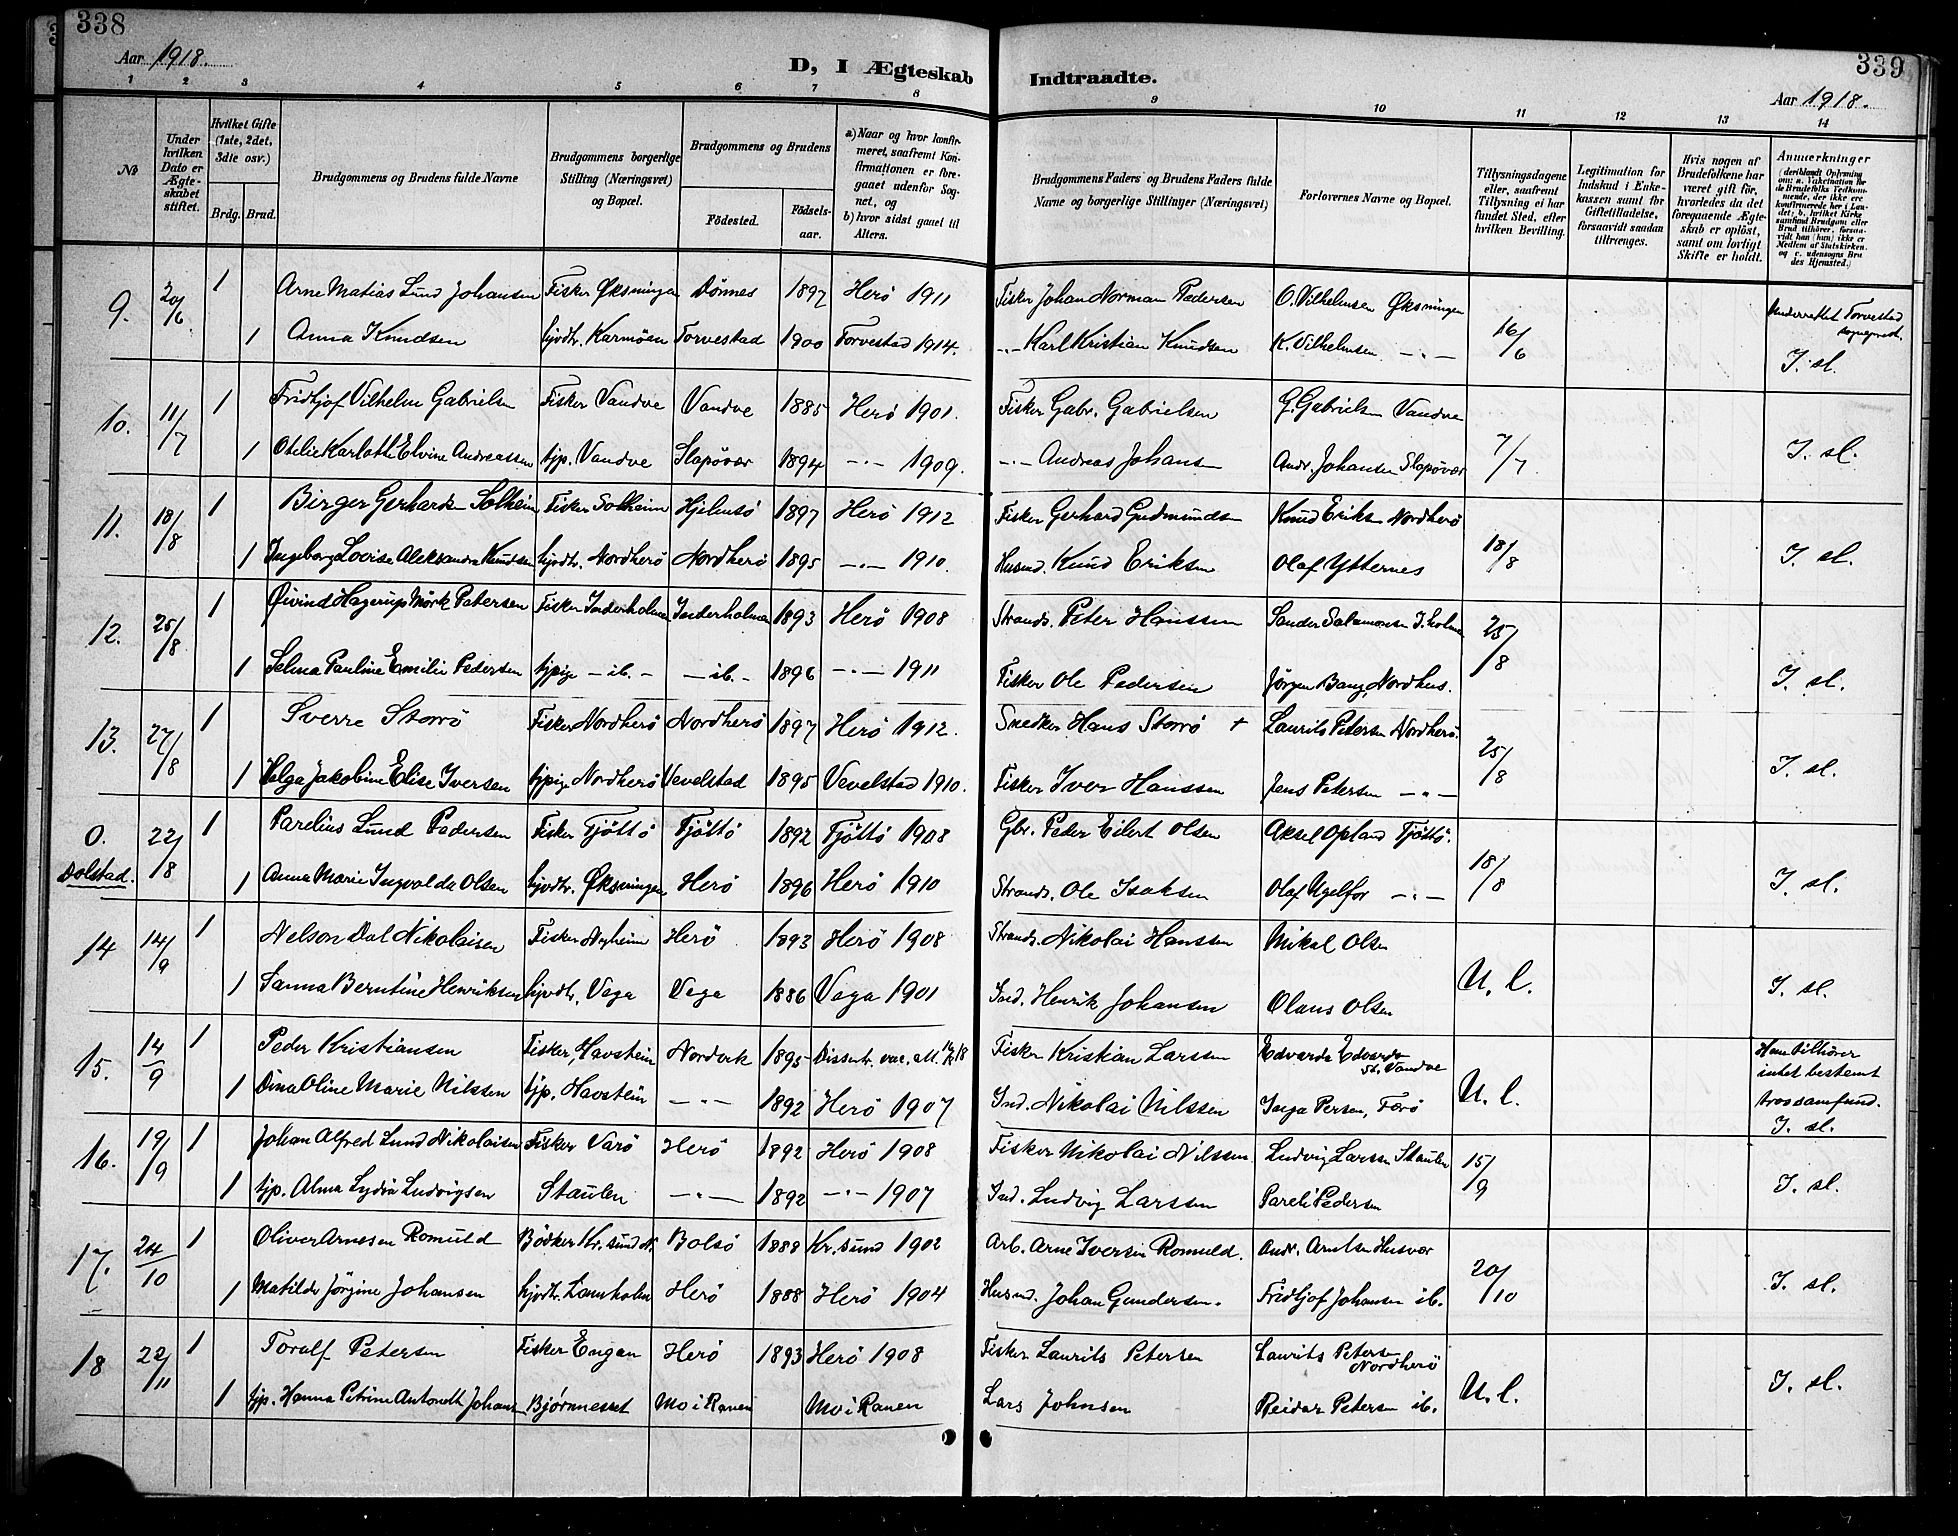 338
339
Aar 1918.
D, I Ægteskab Indtraadte.
Aar 1918.
1 2 3 4 5 6 7 8 9 10 11 12 13 14
No
Under hvilken Dato er Ægteskabet stiftet.
Hvilket Gifte (1ste, 2det, 3die osv.)
Brdg. Brud.
Brudgommens og Brudens fulde Navne
Brudgommens borgerlige Stilling (Næringsvei) og Bopæl.
Brudgommens og Brudens
Fødested. Fødselsaar.
a) Naar og hvor konfirmeret, saafremt Konfirmationen er foregaaet udenfor Sognet, og
b) hvor sidst gaaet til Alters.
Brudgommens Faders og Brudens Faders fulde Navne og borgerlige Stillinger (Næringsvei)
Forlovernes Navne og Bopæl.
Tillysningsdagene eller, saafremt Tillysning ei har fundet Sted, efter hvilken Bevilling.
Legitimation for Indskud i Enkekassen samt for Giftetilladelse, forsaavidt saadan tiltrænges.
Hvis nogen af Brudefolkene har været gift før, hvorledes da det foregaaende Ægteskab er opløst, samt om lovligt Skifte er holdt.
Anmerkninger
(deriblandt Oplysning om: a. Vakcination for de Brudefolks Vedkommende, der ikke ere konfirmerede her i Landet; b. hvilket Kirkesamfund Brudgom eller Brud tilhører, forsaavidt han (hun) ikke er Medlem af Statskirken, og c. udensogns Brudes Hjemsted.)
9. 20/6 1 Arne Matias Lund Johansen Fisker Øksningen Dønnes 1897 Herö 1911 Fisker Johan Norman Pedersen O. Vilhelmsen Øksningen 16/6 Underrettet Torvestad sogneprest.
1 Anna Knudsen hjvdtr. Karmöen Torvestad 1900 Torvestad 1914. -"- Karl Kristian Knudsen K. Vilhelmsen -"- I. sl.
10. 11/7 1 Fridtjof Vilhelm Gabrielsen Fisker Vandve Vandve 1885 Herö 1901. Fisker Gabr. Gabrielsen G. Gabrielsen Vandve 7/7
1 Otelie Karlotte Elvine Andreassen tjp. Vandve Slapövær 1894 -"- 1909. -"- Andreas Johansen Andr. Johansen Slapövær I. sl.
11. 18/8 1 Birger Gerhardsen Solheim Fisker Solheim Hjelmsö 1897 Herö 1912 Fisker Gerhard Gudmundsen Knud Eriksen Nordherö 18/8
1 Ingeborg Lovise Aleksandra Knudsen hjvdtr. Nordherö Nordherö 1895 -"- 1910. Husmd. Knud Eriksen Olaf Ytternes I. sl.
12. 25/8 1 Øivind Hagerup Mörk Petersen Fisker Inderholmen Inderholmen 1893 Herö 1908 Strands. Peter Hanssen Sander Salamonsen I.holmen 25/8
1 Selma Pauline Emilie Pedersen tjpige -ib.- -ib.- 1896 -"- 1911 Fisker Ole Pedersen Jörgen Bang, Nordhus. I. sl.
13. 27/8 1 Sverre Storrö Fisker Nordherö Nordherö 1897 Herö 1912. Snedker Hans Storrö + Laurits Petersen Nordherö. 25/8
1 Helga Jakobine Elise Iversen tjpige Nordherö Vevelstad 1895 Vevelstad 1910. Fisker Iver Hanssen Jens Petersen -"- I. sl.
0. Dolstad. 22/8 1 Parelius Lund Pedersen Fisker Tjöttö Tjöttö 1892 Tjöttö 1908 Gbr. Peder Eilert Olsen Aksel Opland Tjöttö. 18/8
1 Anna Marie Ingvalda Olsen hjvdtr. Øksningen Herö 1896 Herö 1910 Strands. Ole Isaksen Olaf Ugelfor -"- I. sl.
14 14/9 1 Nelson Dal Nikolaisen Fisker Nyheim Herö 1893 Herö 1908 Strands. Nikolai Hanssen Mikal Olsen U. l.
1 Sanna Berntine Henriksen hjvdtr. Vega Vega 1886 Vega 1901 Ind. Henrik Johansen Olaus Olsen I. sl.
15. 14/9 1 Peder Kristiansen Fisker, Havstein Nordvik 1895 Dissentr. Fisker Kristian Larssen Edvard Edvardsen St. Vandve U. l. Han tilhörer intet bestemt trossamfund.
1 Dina Oline Marie Nilssen tjp. Havstein -"- 1892 Herö 1907 Ind. Nikolai Nilssen Inga Persen, Færö I. sl.
16. 19/9 1 Johan Alfred Lund Nikolaisen Fisker Varö Herö 1892 Herö 1908 Fisker Nikolai Nilssen Ludvig Larssen Staulen 15/9
1 tjp. Alma Lydia Ludvigsen Staulen -"- 1892 -"- 1907 Ind. Ludvig Larssen Pareli Pedersen I. sl.
17. 24/10 1 Oliver Arnesen Romuld Bödker Kr.sund N. Bolsö 1888 Kr.sund 1902 Arb. Arne Iversen Romuld. Andr. Arntsen Husvær 20/10
1 Matilde Jörgine Johansen hjvdtr. Lamholm Herö 1888 Herö 1904 Husmd. Johan Gundersen. Fridtjof Johansen ib. I. sl.
18 22/11 1 Toralf Petersen Fisker Engan Herö 1893 Herö 1908 Fisker Laurits Petersen Laurits Petersen Nordherö U. l.
1 tjp. Hanna Petrine Antonette Johansen Bjørnneset Mo i Ranen Mo i Ranen Lars Johnsen Reidar Petersen ib. I. sl.